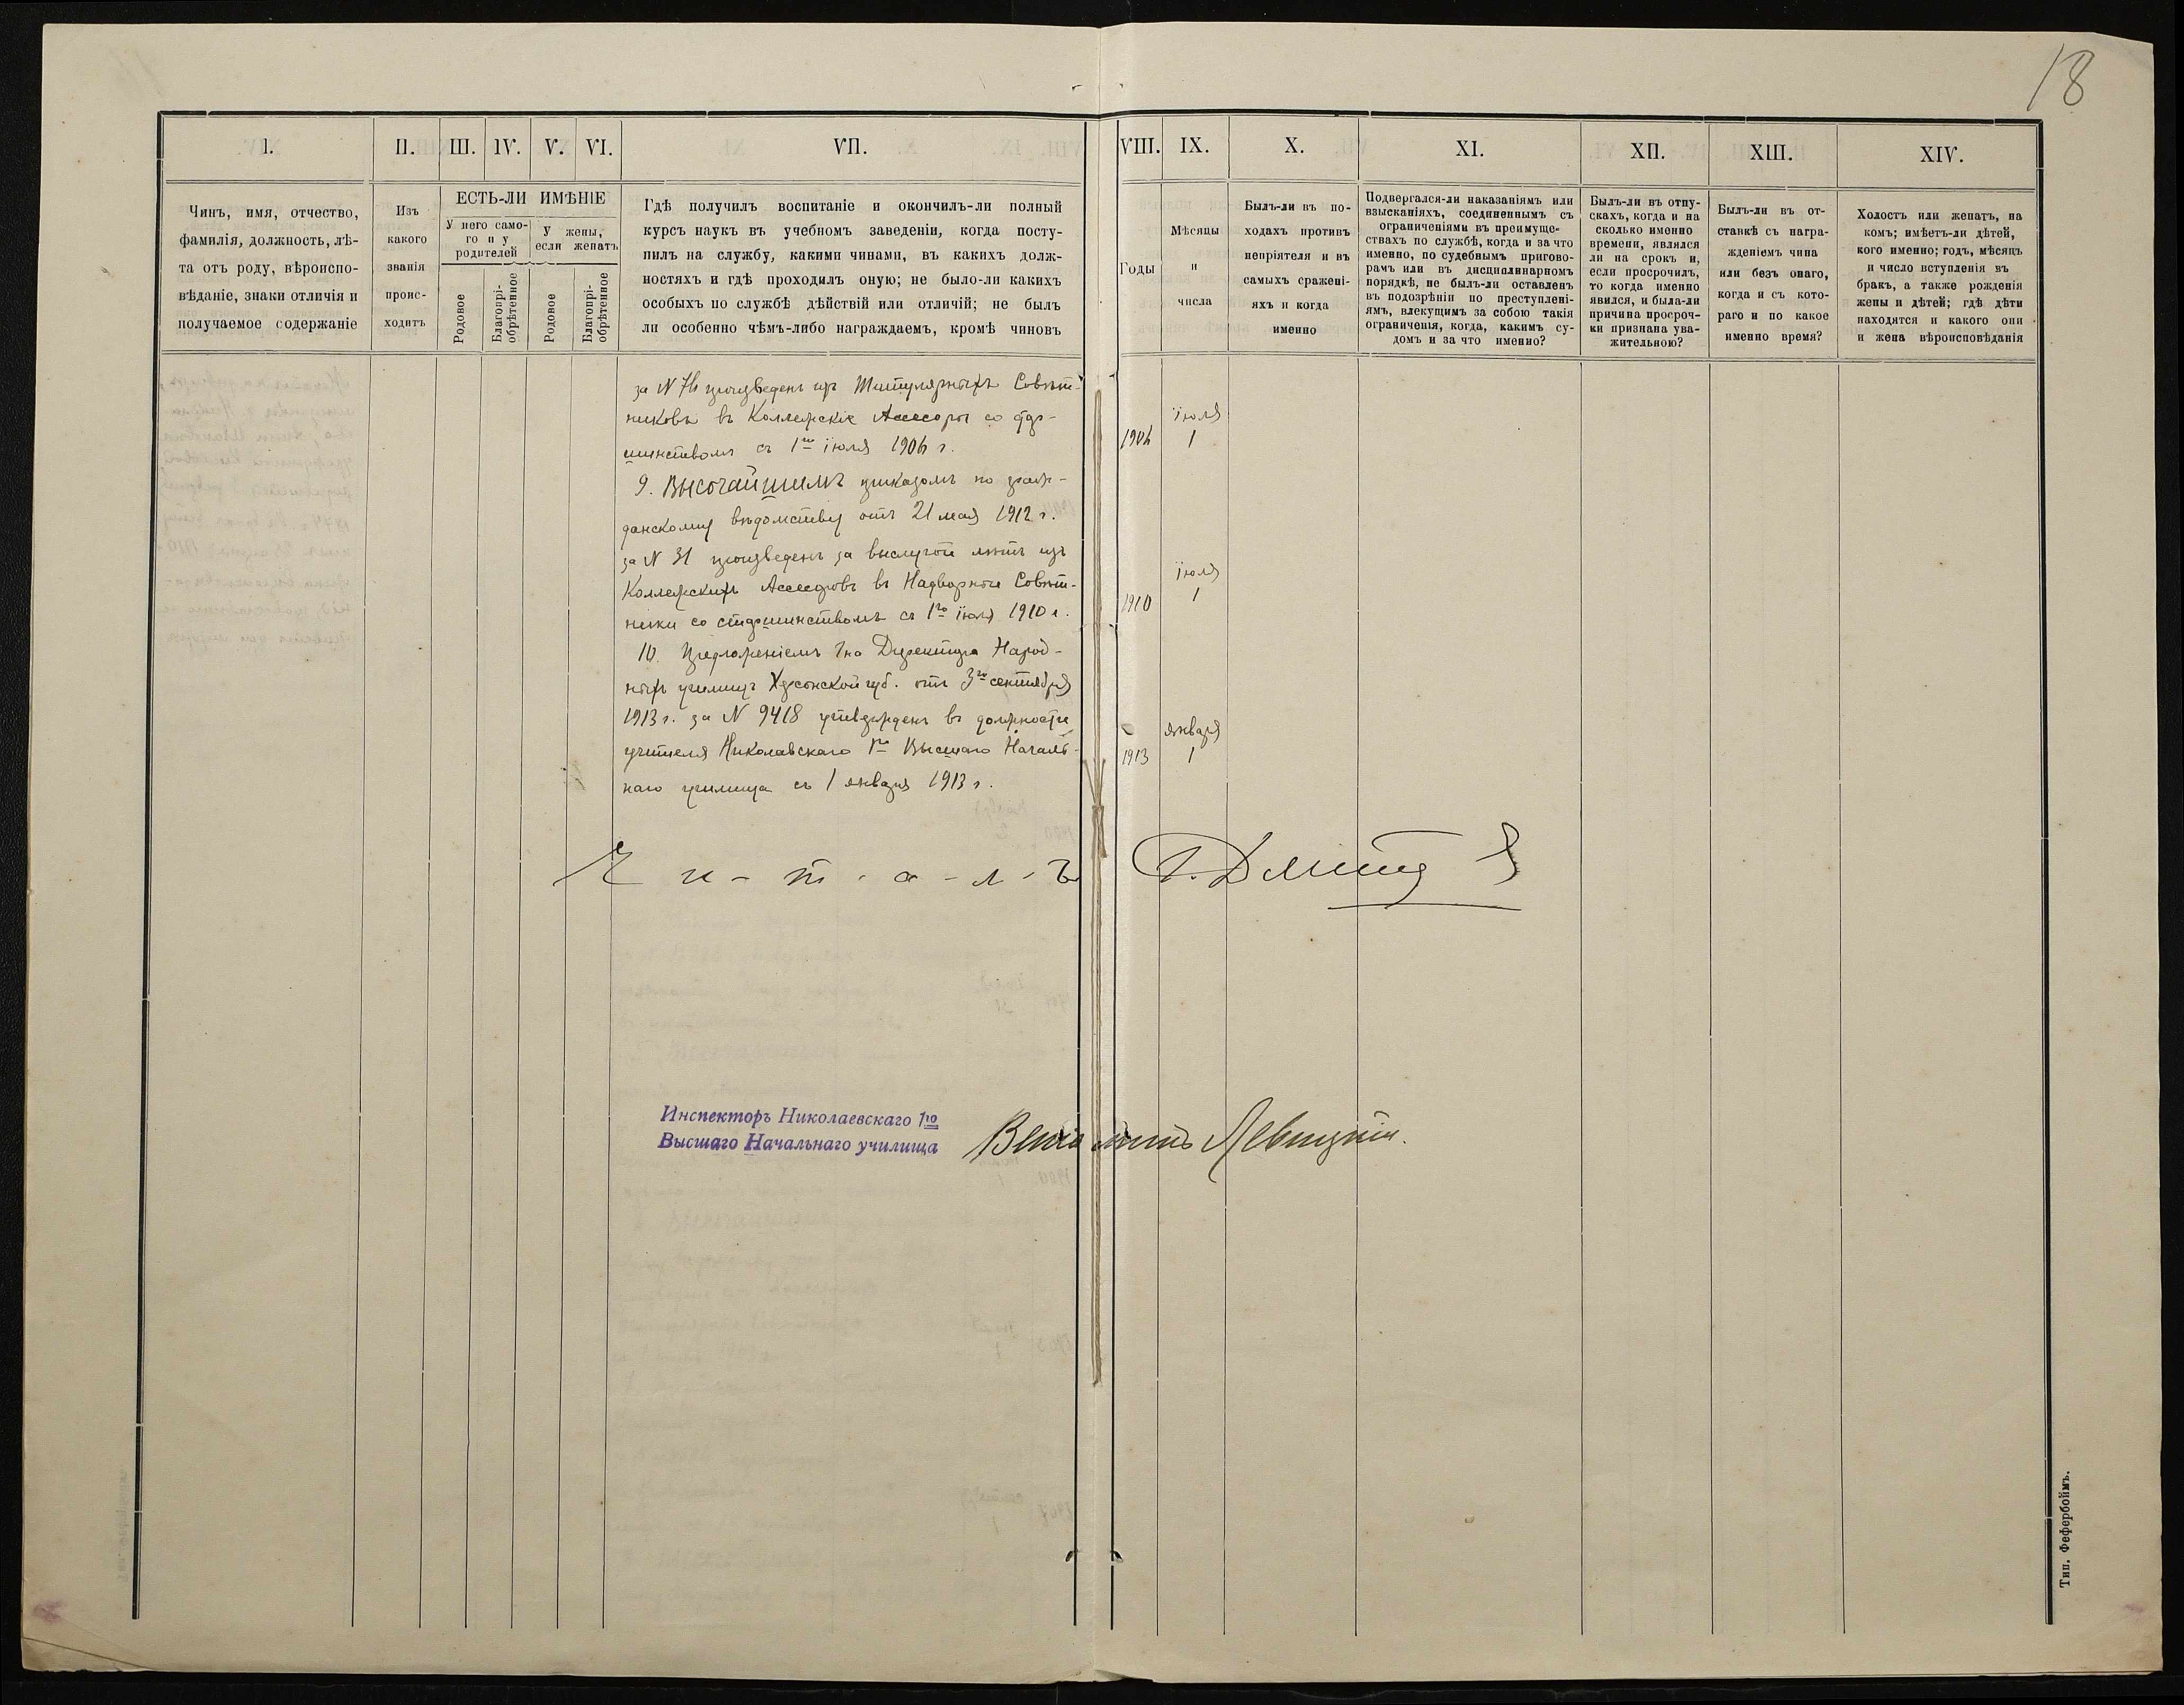 18
I. II. III. IV. V. VI. VII. VIII. IX. X. XI. XII. XIII. XIV.
Чинъ, имя, отчество,
фамилія, должность, лѣ-
та отъ роду, вѣроиспо-
вѣданіе, знаки отличія и
получаемое содержаніе
Изъ
какого
званія
проис-
ходитъ
ЕСТЬ-ЛИ ИМѢНІЕ
У него само-
го и у
родителей
У жены,
если женатъ
Родовое
Благопрі-
обрѣтенное
Родовое
Благопрі-
обрѣтенное
Гдѣ получилъ воспитаніе и окончилъ-ли полный
курсъ наукъ въ учебномъ заведеніи, когда посту-
пилъ на службу, какими чинами, въ какихъ долж-
ностяхъ и гдѣ проходилъ оную; не было-ли какихъ
особыхъ по службѣ дѣйствій или отличій; не былъ
ли особенно чѣмъ-либо награждаемъ, кромѣ чиновъ
Годы
Мѣсяцы
и
числа
Былъ-ли въ по-
ходахъ противъ
непріятеля и въ
самыхъ сражені-
яхъ и когда
именно
Подвергался-ли наказаніямъ или
взысканіяхъ, соединеннымъ съ
ограниченіями въ преимуще-
ствахъ по службѣ, когда и за что
именно, по судебнымъ пригово-
рамъ или въ дисциплинарномъ
порядкѣ, не былъ-ли оставленъ
въ подозрѣніи по преступлені-
ямъ, влекущимъ за собою такія
ограниченія, когда, какимъ су-
домъ и за что именно?
Былъ-ли въ отпу-
скахъ, когда и на
сколько именно
времени, являлся
ли на срокъ и,
если просрочилъ,
то когда именно
явился, и была-ли
причина просроч-
ки признана ува-
жительною?
Былъ-ли въ от-
ставкѣ съ награ-
жденіемъ чина
или безъ онаго,
когда и съ кото-
раго и по какое
именно время?
Холостъ или женатъ, на
комъ; имѣетъ-ли дѣтей,
кого именно; годъ, мѣсяцъ
и число вступленія въ
бракъ, а также рожденія
жены и дѣтей; гдѣ дѣти
находятся и какого они
и жена вѣроисповѣданія
за N 76 произведенъ изъ Титулярныхъ Совѣт-
никовъ въ Коллежскіе Ассесоры со стар-
шинствомъ съ 1го іюля 1906 г.
1906 іюля 1
9. Высочайшимъ приказомъ по граж-
данскому вѣдомству отъ 21 мая 1912 г.
за N 31 произведенъ за выслугой лѣтъ изъ
Коллежскихъ Ассесоровъ въ Надворные Совѣт-
ники со старшинствомъ съ 1го іюля 1910 г.
1910 іюля 1
10. Предложеніемъ Г-на Директора Народ-
ныхъ училищъ Херсонской губ. отъ 3го сентября
1913 г. за N 9418 утвержденъ въ должности
учителя Николавскаго 1го Высшаго Началь-
наго училища съ 1 января 1913 г.
1913 января 1
Ч и - т - а - л - ъ
Инспекторъ Николаевскаго 1го
Высшаго Начальнаго училища
Веніаминъ Левицкій.
Тип. Фефербоймъ.